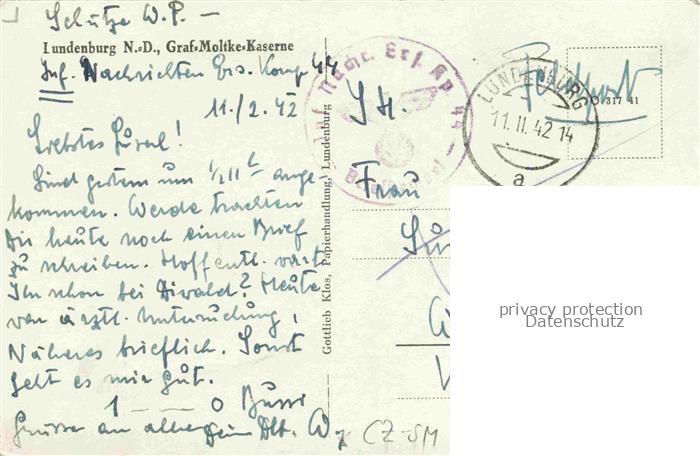 Schütze W. P. –
Lundenburg N.-D., Graf-Moltke-Kaserne
Inf. Nachrichten Ers. Komp. 44
11./2. 42
Liebstes
Sind gestern um 1/2 11 h ange-
kommen. Werde trachten
Dir heute noch einen Brief
zu schreiben. Hoffentl. wart
Ihr schon bei Divald? Heute
war ärztl. Untersuchung,
Näheres brieflich. Sonst
geht es mir gut.
1 – – – 0 Bussi
Grüsse an alle
Gottlieb Klos, Papierhandlung, Lundenburg
Inf. Nachr. Ers. Kp. 44
Briefstempel
Feldpost
LUNDENBURG
11.II.42 14
a
O 317 41
Frau
privacy protection
Datenschutz
CZ-SM